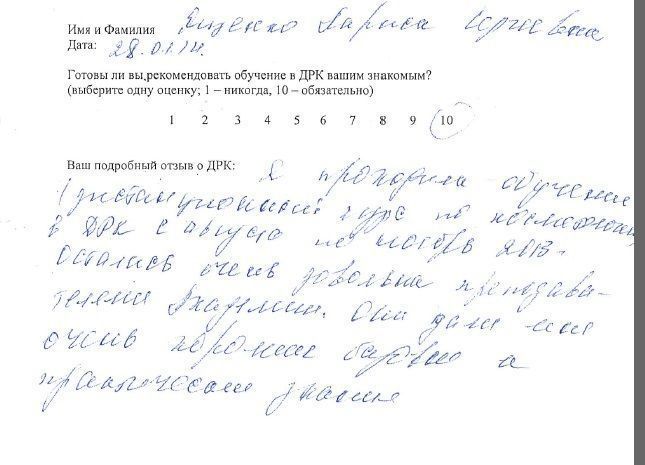 Имя и Фамилия Ященко Лариса Юрьевна
Дата: 28.01.14.
Готовы ли вы рекомендовать обучение в ДРК вашим знакомым?
(выберите одну оценку; 1 – никогда, 10 – обязательно)
1 2 3 4 5 6 7 8 9 10
Ваш подробный отзыв о ДРК: Я проходила обучение
(дистанционный курс по косметологии
в ДРК с августа по ноябрь 2013.
Осталась очень довольна преподава-
телями Академии. Они дали мне
очень хорошие базовые и
практические знания